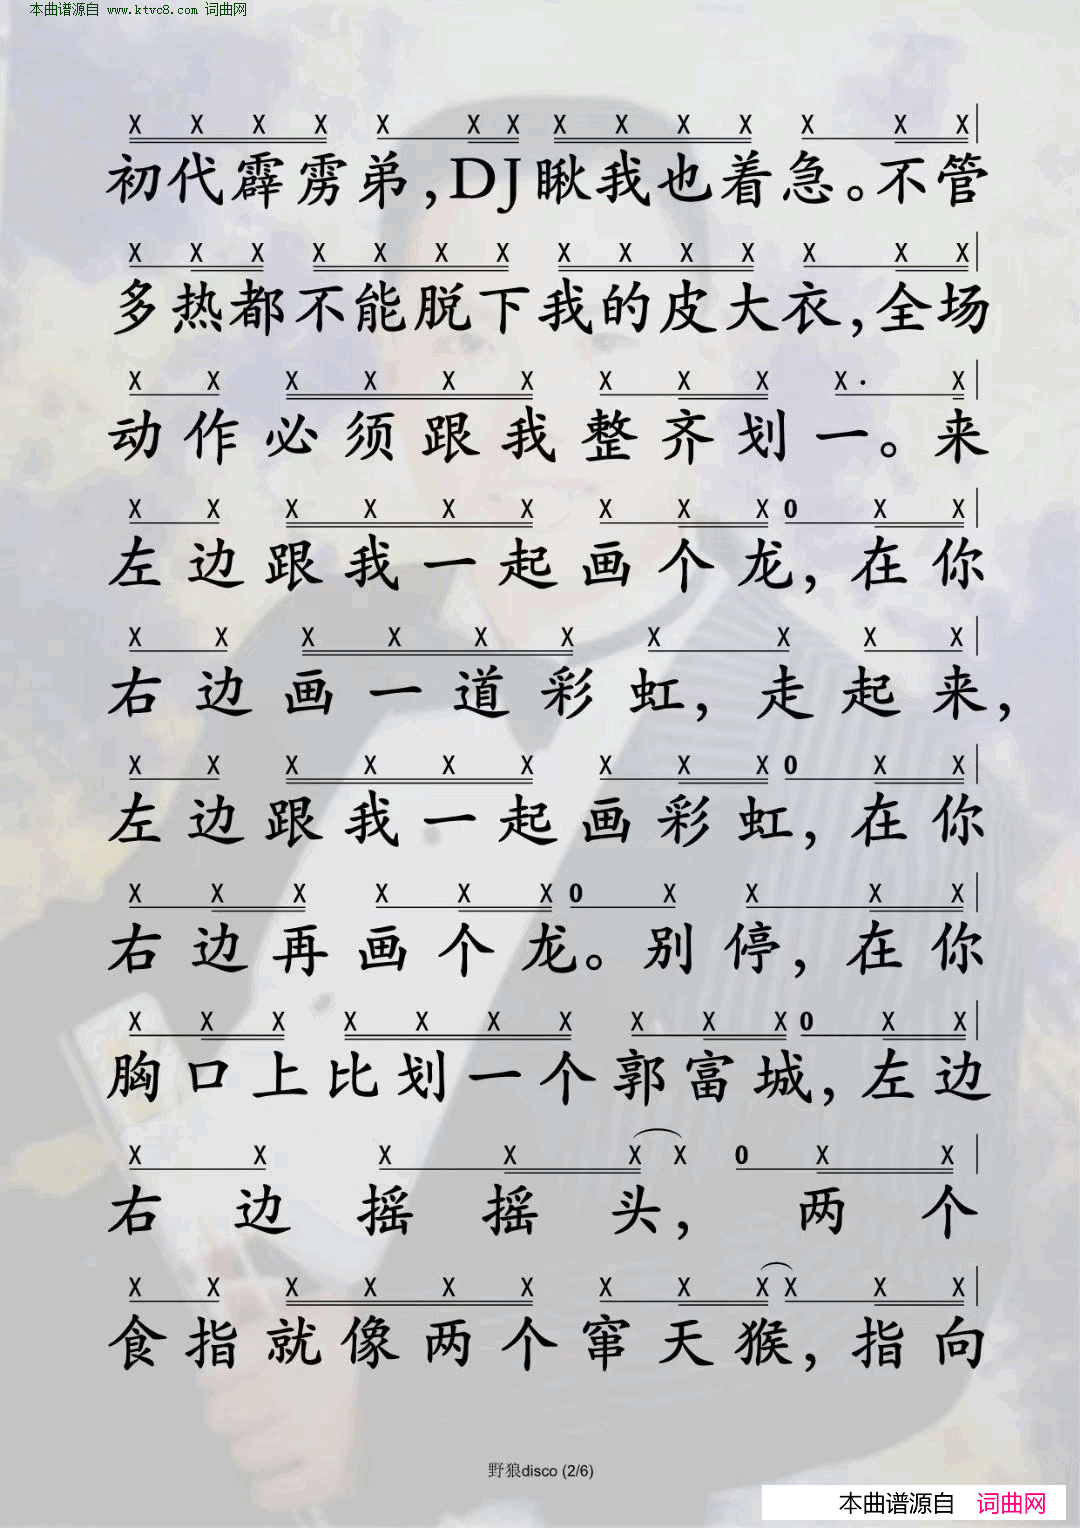 本曲谱源自 www.ktvc8.com 词曲网
X X X X X X X X X X X X X X
初代霹雳弟，DJ瞅我也着急。不管
X X X X X X X X X X X X X X
多热都不能脱下我的皮大衣，全场
X X X X X X X X X X · X
动作必须跟我整齐划一。来
X X X X X X X X X 0 X X
左边跟我一起画个龙，在你
X X X X X X X X X X
右边画一道彩虹，走起来，
X X X X X X X X X 0 X X
左边跟我一起画彩虹，在你
X X X X X X 0 X X X X
右边再画个龙。别停，在你
X X X X X X X X X X 0 X X
胸口上比划一个郭富城，左边
X X X X X X 0 X X
右边摇摇头，两个
X X X X X X X X X X X X
食指就像两个窜天猴，指向
野狼disco (2/6)
本曲谱源自 词曲网